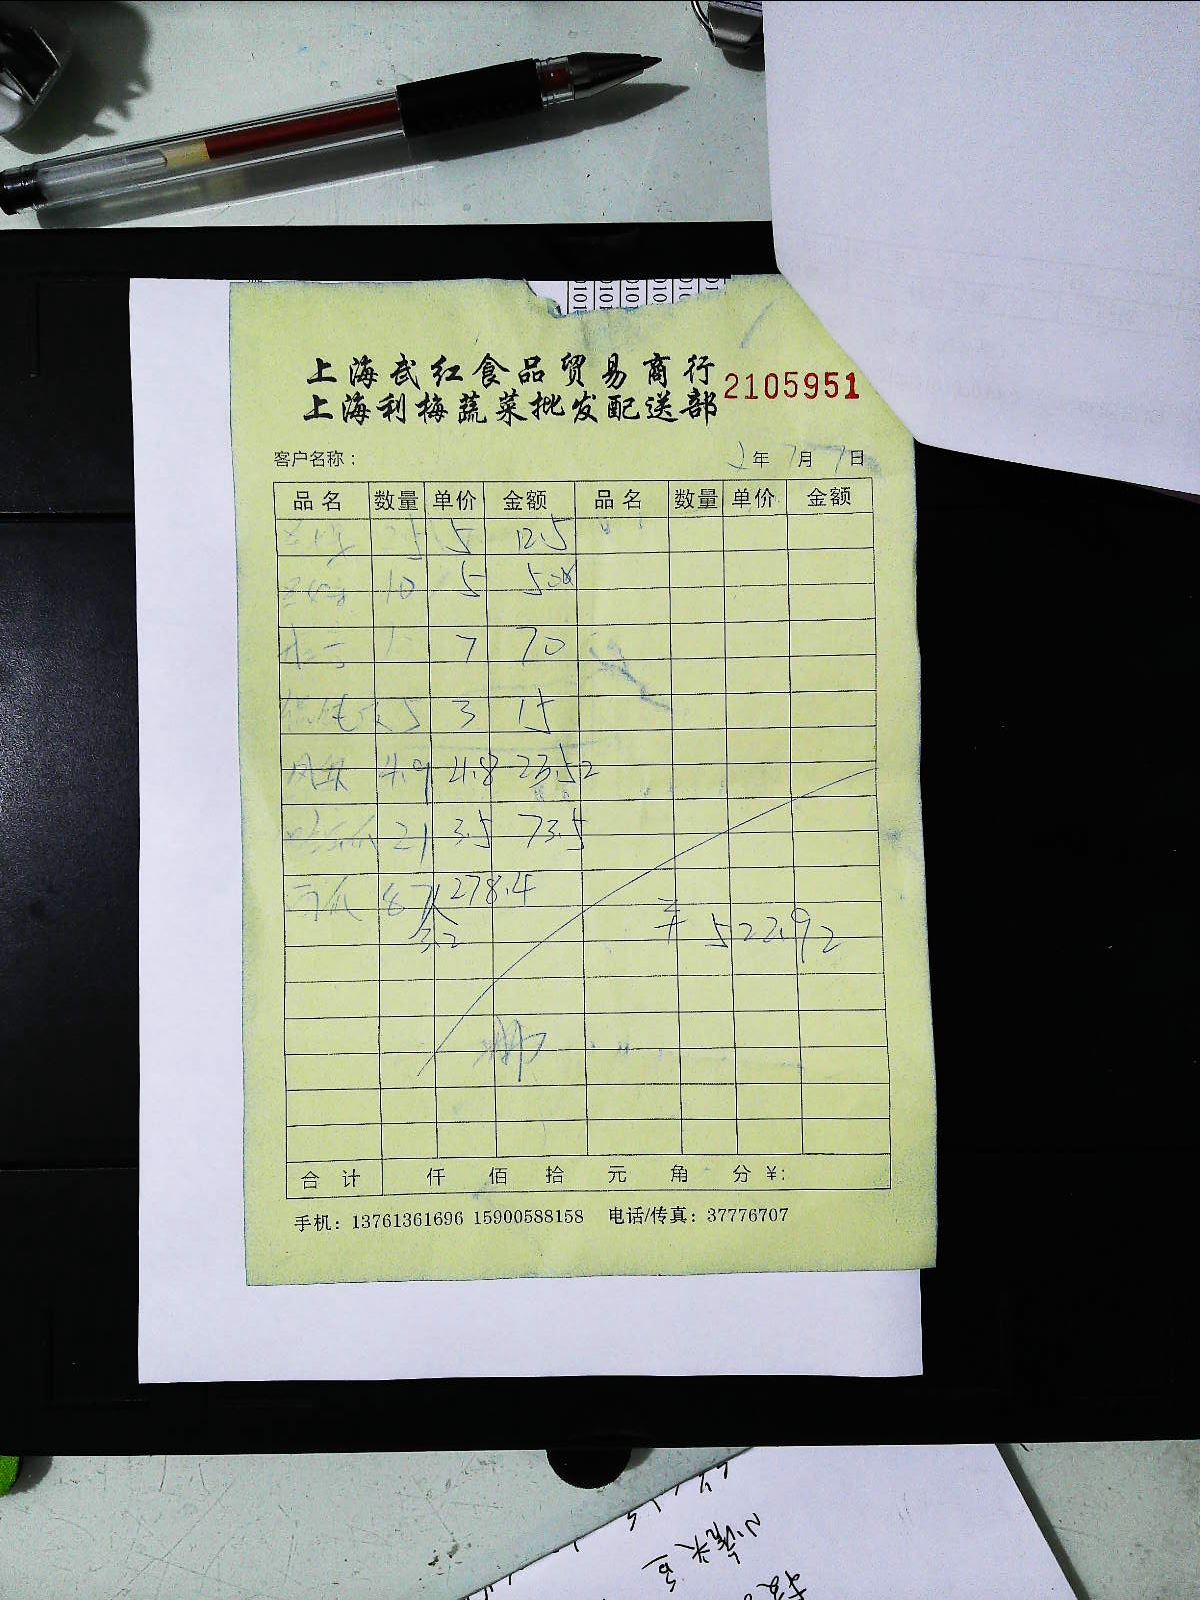 上海武红食品贸易商行
上海利梅蔬菜批发配送部
2105951
客户名称：
2年7月7日
品名 数量 单价 金额 品名 数量 单价 金额
2.5 5 12.5
10 5 50
7 70
5 3 15
凤梨 4.9 4.8 23.52
哈密瓜 21 3.5 73.5
西瓜 87 278.4
3.2
¥ 522.92
合计 仟 佰 拾 元 角 分 ¥:
手机：13761361696 15900588158 电话/传真：37776707